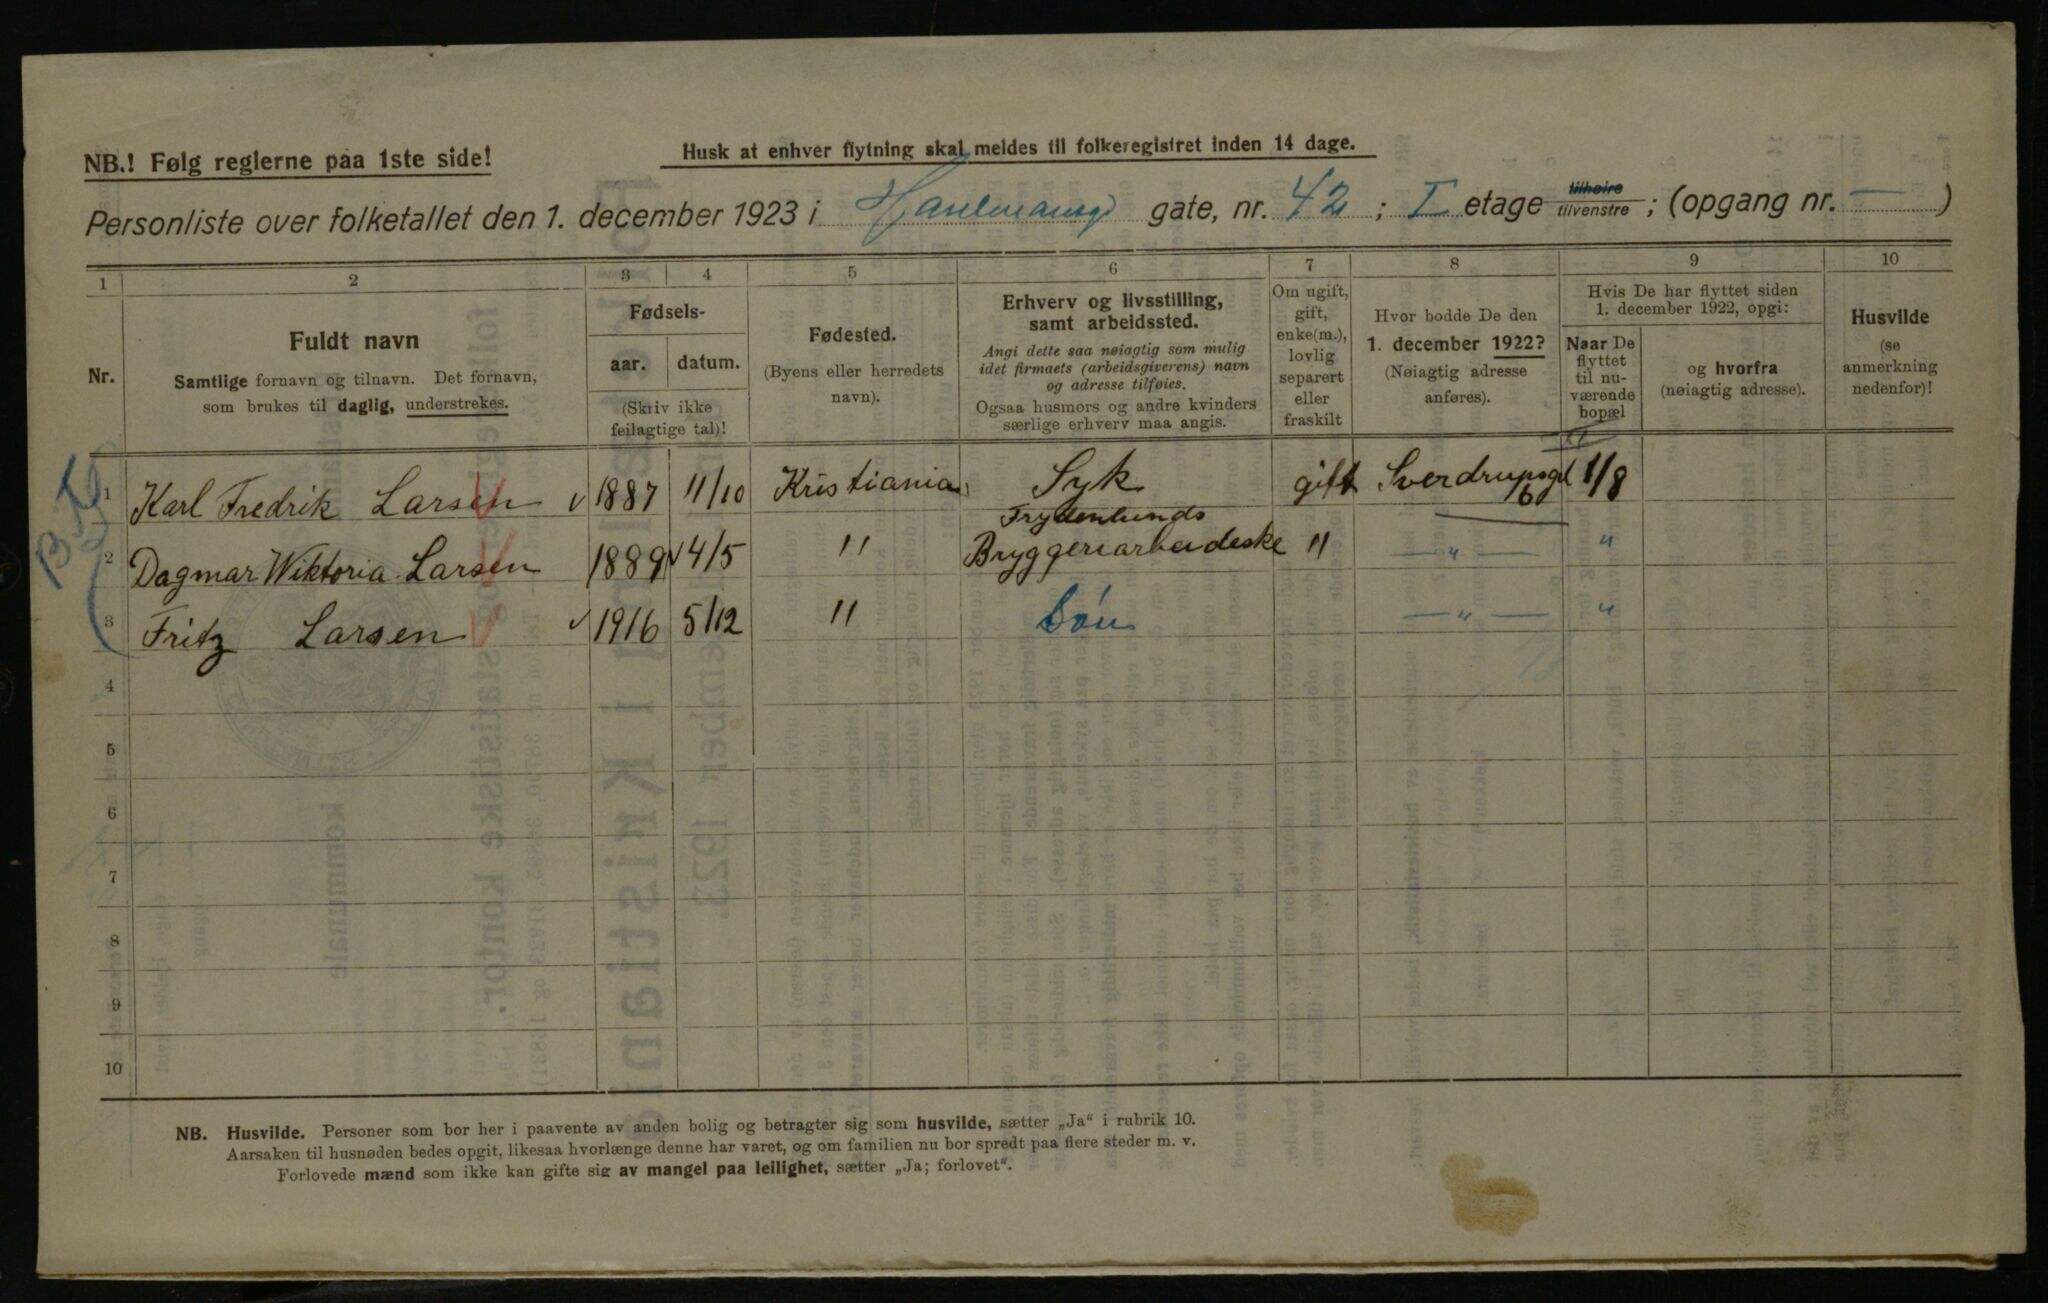 NB.! Følg reglerne paa 1ste side!
Husk at enhver flytning skal meldes til folkeregistret inden 14 dage.
Personliste over folketallet den 1. december 1923 i gate, nr. 42 ; I etage tilhøire tilvenstre ; (opgang nr. — )
1 2 3 4 5 6 7 8 9 10
Nr.
Fuldt navn
Samtlige fornavn og tilnavn. Det fornavn,
som brukes til daglig, understrekes.
Fødsels-
aar. datum.
(Skriv ikke
feilagtige tal)!
Fødested.
(Byens eller herredets
navn).
Erhverv og livsstilling,
samt arbeidssted.
Angi dette saa nøiagtig som mulig
idet firmaets (arbeidsgiverens) navn
og adresse tilføies.
Ogsaa husmors og andre kvinders
særlige erhverv maa angis.
Om ugift,
gift,
enke(m.),
lovlig
separert
eller
fraskilt
Hvor bodde De den
1. december 1922?
(Nøiagtig adresse
anføres).
Hvis De har flyttet siden
1. december 1922, opgi:
Naar De
flyttet
til nu-
værende
bopæl
og hvorfra
(nøiagtig adresse).
Husvilde
(se
anmerkning
nedenfor)!
1 Karl Fredrik Larsen 1887 11/10 Kristiania Syk gift Sverdrupsgt 6 1/8
2 Dagmar Wiktoria Larsen 1889 4/5 " Frydenlunds
Bryggeriarbeideske " — " — "
3 Fritz Larsen 1916 5/12 " Søn — " — "
4
5
6
7
8
9
10
NB. Husvilde. Personer som bor her i paavente av anden bolig og betragter sig som husvilde, sætter „Ja“ i rubrik 10.
Aarsaken til husnøden bedes opgit, likesaa hvorlænge denne har varet, og om familien nu bor spredt paa flere steder m. v.
Forlovede mænd som ikke kan gifte sig av mangel paa leilighet, sætter „Ja; forlovet“.